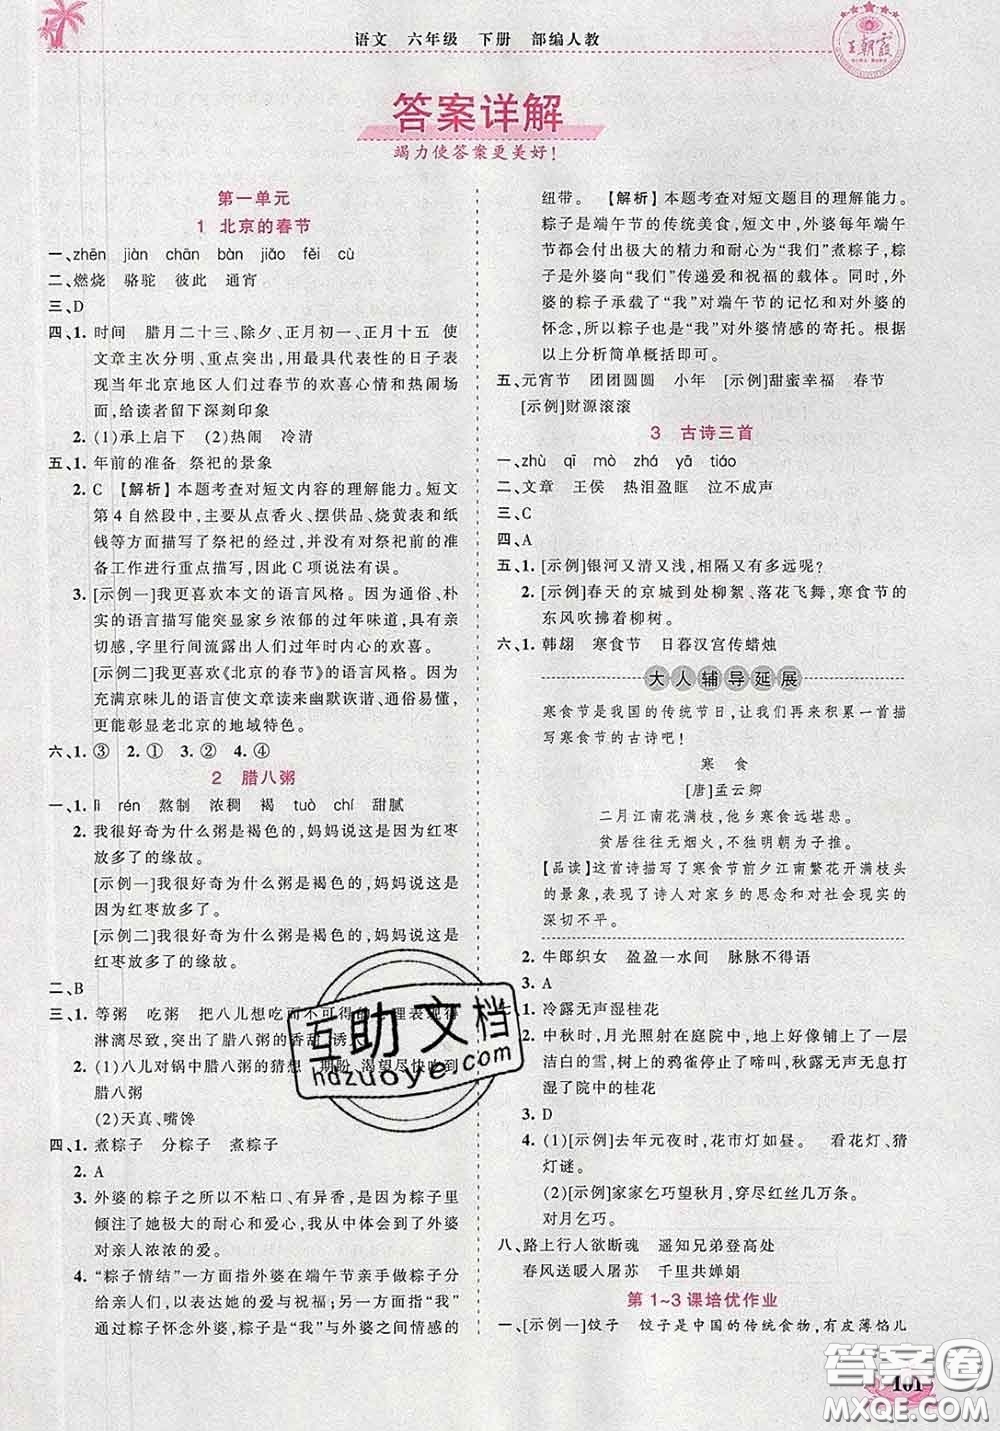 语文 六年级 下册 部编人教
王朝霞
答案详解
竭力使答案更美好!
第一单元
1 北京的春节
一、zhēn jiàn chān bàn jiǎo fěi cù
二、燃烧 骆驼 彼此 通宵
三、D
四、1. 时间 腊月二十三、除夕、正月初一、正月十五 使
文章主次分明、重点突出,用最具代表性的日子表
现当年北京地区人们过春节的欢喜心情和热闹场
面,给读者留下深刻印象
2. (1)承上启下 (2)热闹 冷清
五、1. 年前的准备 祭祀的景象
2. C 【解析】本题考查对短文内容的理解能力。短文
第4自然段中,主要从点香火、摆供品、烧黄表和纸
钱等方面描写了祭祀的经过,并没有对祭祀前的准
备工作进行重点描写,因此C项说法有误。
3. [示例一]我更喜欢本文的语言风格。因为通俗、朴
实的语言描写能突显家乡浓郁的过年味道,具有亲
切感,字里行间流露出人们过年时内心的欢喜。
[示例二]我更喜欢《北京的春节》的语言风格。因为
充满京味儿的语言使文章读来幽默诙谐、通俗易懂,
更能彰显老北京的地域特色。
六、1. ③ 2. ① 3. ② 4. ④
2 腊八粥
一、1. lì rén 熬制 浓稠 褐 tuò chí 甜腻
2. 我很好奇为什么粥是褐色的,妈妈说这是因为红枣
放多了的缘故。
[示例一]我很好奇为什么粥是褐色的,妈妈说这是
因为红枣放多了。
[示例二]我很好奇为什么粥是褐色的,妈妈说这是
红枣放多了的缘故。
二、B
三、1. 等粥 吃粥 把八儿想吃而不可得的心理表现得
淋漓尽致,突出了腊八粥的香甜、诱人
2. (1)八儿对锅中腊八粥的猜想 期盼、渴望尽快吃到
腊八粥
(2)天真、嘴馋
四、1. 煮粽子 分粽子 煮粽子
2. A
3. 外婆的粽子之所以不粘口、有异香,是因为粽子里
倾注了她极大的耐心和爱心,我从中体会到了外婆
对亲人浓浓的爱。
4. “粽子情结”一方面指外婆在端午节亲手做粽子分
给亲人们,以表达她的爱与祝福;另一方面指“我”
通过粽子怀念外婆,粽子是“我”与外婆之间情感的
纽带。 【解析】本题考查对短文题目的理解能力。
粽子是端午节的传统美食,短文中,外婆每年端午
节都会付出极大的精力和耐心为“我们”煮粽子,粽
子是外婆向“我们”传递爱和祝福的载体。同时,外
婆的粽子承载了“我”对端午节的记忆和对外婆的
怀念,所以粽子也是“我”对外婆情感的寄托。根据
以上分析简单概括即可。
五、元宵节 团团圆圆 小年 [示例]甜蜜幸福 春节
[示例]财源滚滚
3 古诗三首
一、zhù qī mò zhá yā tiáo
二、文章 王侯 热泪盈眶 泣不成声
三、C
四、A
五、1. [示例]银河又清又浅,相隔又有多远呢?
2. [示例]春天的京城到处柳絮、落花飞舞,寒食节的
东风吹拂着柳树。
六、1. 韩翃 寒食节 日暮汉宫传蜡烛
大人辅导延展
寒食节是我国的传统节日,让我们再来积累一首描
写寒食节的古诗吧!
寒 食
[唐]孟云卿
二月江南花满枝,他乡寒食远堪悲。
贫居往往无烟火,不独明朝为子推。
【品读】这首诗描写了寒食节前夕江南繁花开满枝头
的景象,表现了诗人对家乡的思念和对社会现实的
深切不平。
2. 牛郎织女 盈盈一水间 脉脉不得语
3. A
七、1. 冷露无声湿桂花
2. 中秋时,月光照射在庭院中,地上好像铺上了一层
洁白的雪,树上的鸦雀停止了啼叫,秋露无声无息打
湿了院中的桂花
3. D
4. (1)[示例]去年元夜时,花市灯如昼。 看花灯、猜
灯谜。
(2)[示例]家家乞巧望秋月,穿尽红丝几万条。
对月乞巧。
八、路上行人欲断魂 遥知兄弟登高处
春风送暖入屠苏 千里共婵娟
第1~3课培优作业
一、[示例一]饺子 饺子是中国的传统食物,有皮薄馅儿
101
互助文档
hdzuoye.com
答案圈
MXQE.COM